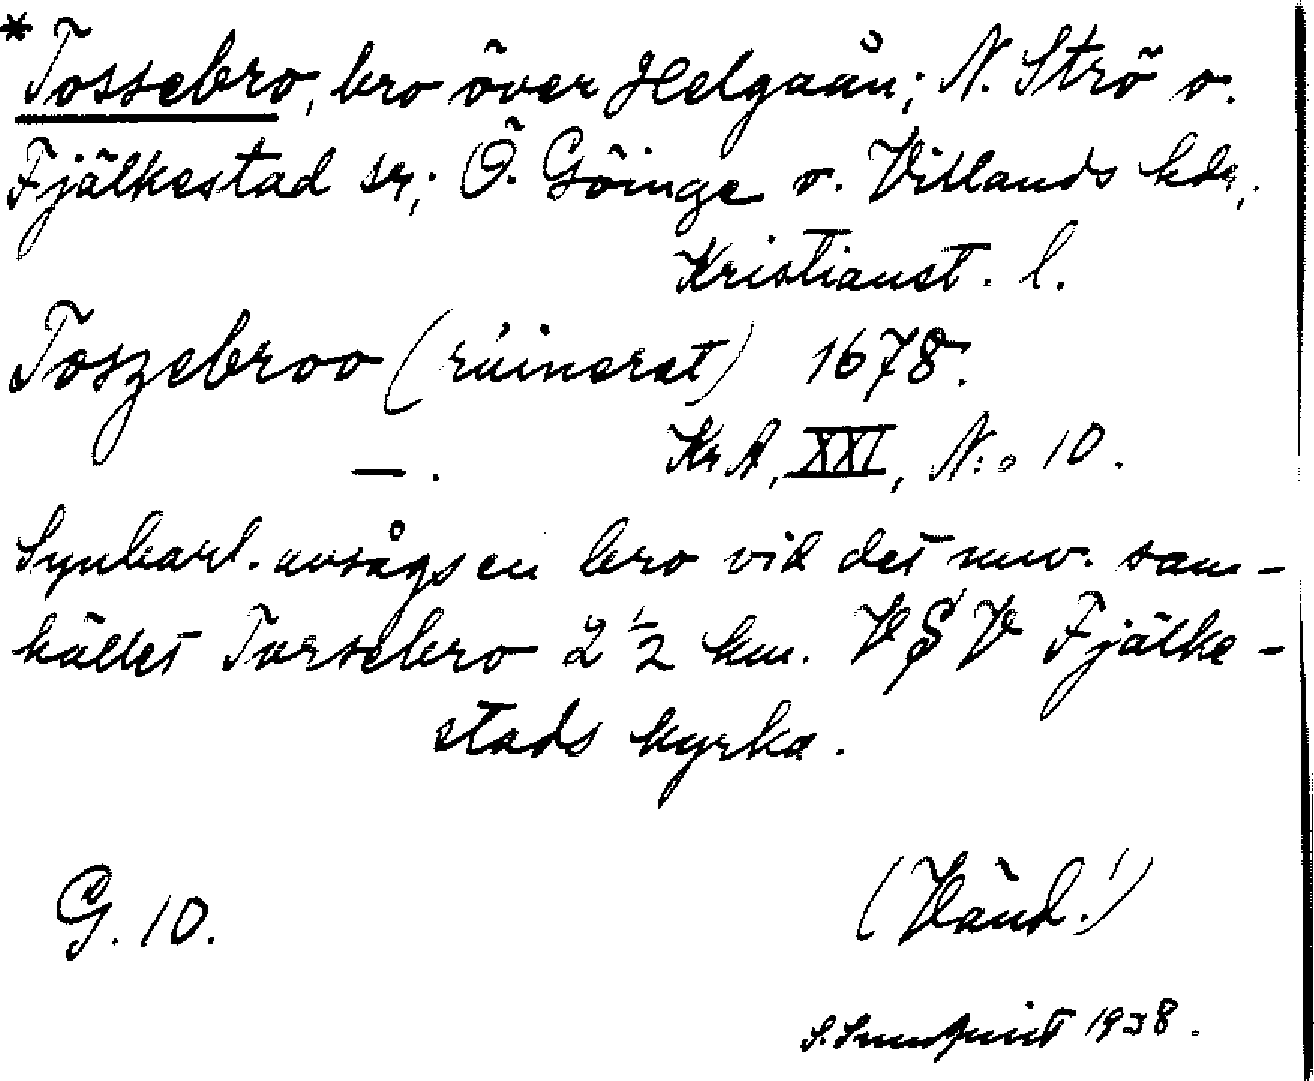 *Tossebro, bro över Helgaån; N. Strö o.
Fjälkestad sr; Ö. Göinge o. Villands hdr,
Kristianst. l.
Toszebroo (rúinerat) 1678.
— . KrA, XXI, N:o 10.
Synbarl. avsågs en bro vid det nuv. sam-
hället Torsebro 2 1/2 km. VSV Fjälke-
stads kyrka.
G. 10. (Vänd!)
S. Sundquist 1938.